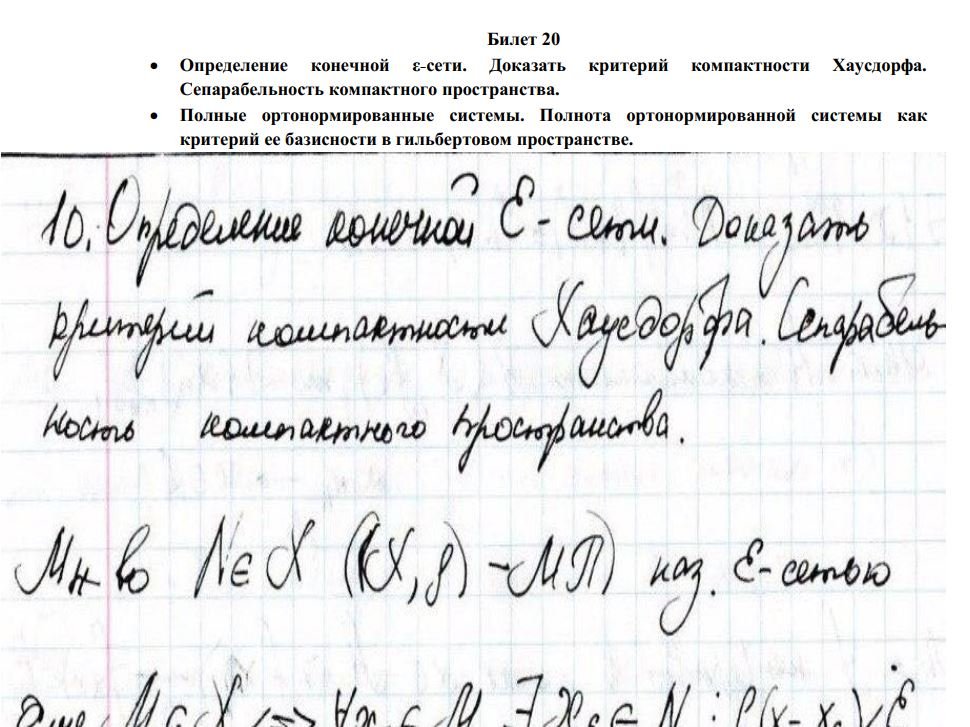 Билет 20
• Определение конечной ε-сети. Доказать критерий компактности Хаусдорфа.
Сепарабельность компактного пространства.
• Полные ортонормированные системы. Полнота ортонормированной системы как
критерий ее базисности в гильбертовом пространстве.
10. Определение конечной Ɛ - сети. Доказать
критерий компактности Хаусдорфа. Сепарабель
ность компактного пространства.
Мн-во N_ε ∈ X ((X, ρ) - МП) наз. Ɛ-сетью
M ⊂ X <=> ∀x ∈ M ∃ x_ε ∈ N : ρ(x - x_ε) < Ɛ